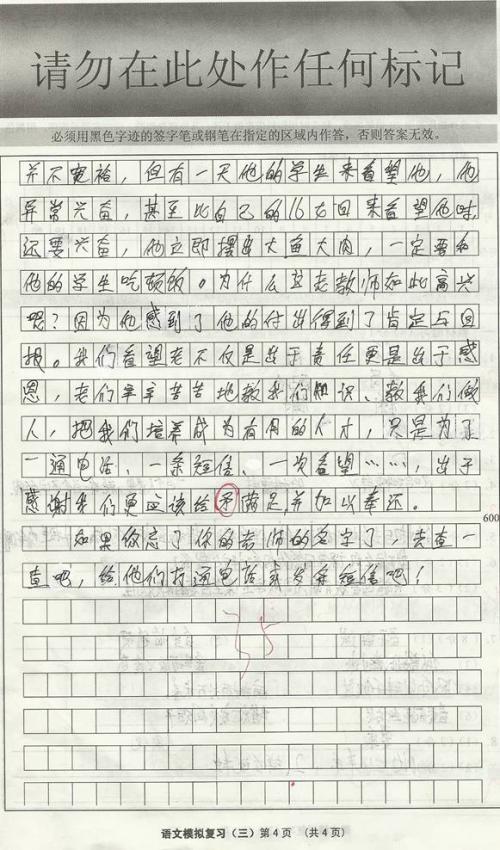 请勿在此处作任何标记
必须用黑色字迹的签字笔或钢笔在指定的区域内作答，否则答案无效。
并不宽裕，但有一天他的学生来看望他，他
异常兴奋，甚至比自己的 回来看望他时
还要兴奋，他立即摆出大鱼大肉，一定要和
他的学生吃顿饭。为什么 老教师如此高兴
呢？因为他感到了他的付出得到了肯定与回
报。我们看望老不仅是出于责任更是出于感
恩，老们辛辛苦苦地教我们知识、教我们做
人，把我们培养成为有用的人才，只是为了
一通电话、一条短信、一次看望……，出于
感谢我们更应该给予满足，并加以奉还。
600
如果你忘了你的老师的名字了，去查一
查吧，给他们打通电话或发条短信吧！
35
语文模拟复习（三）第4页 （共4页）